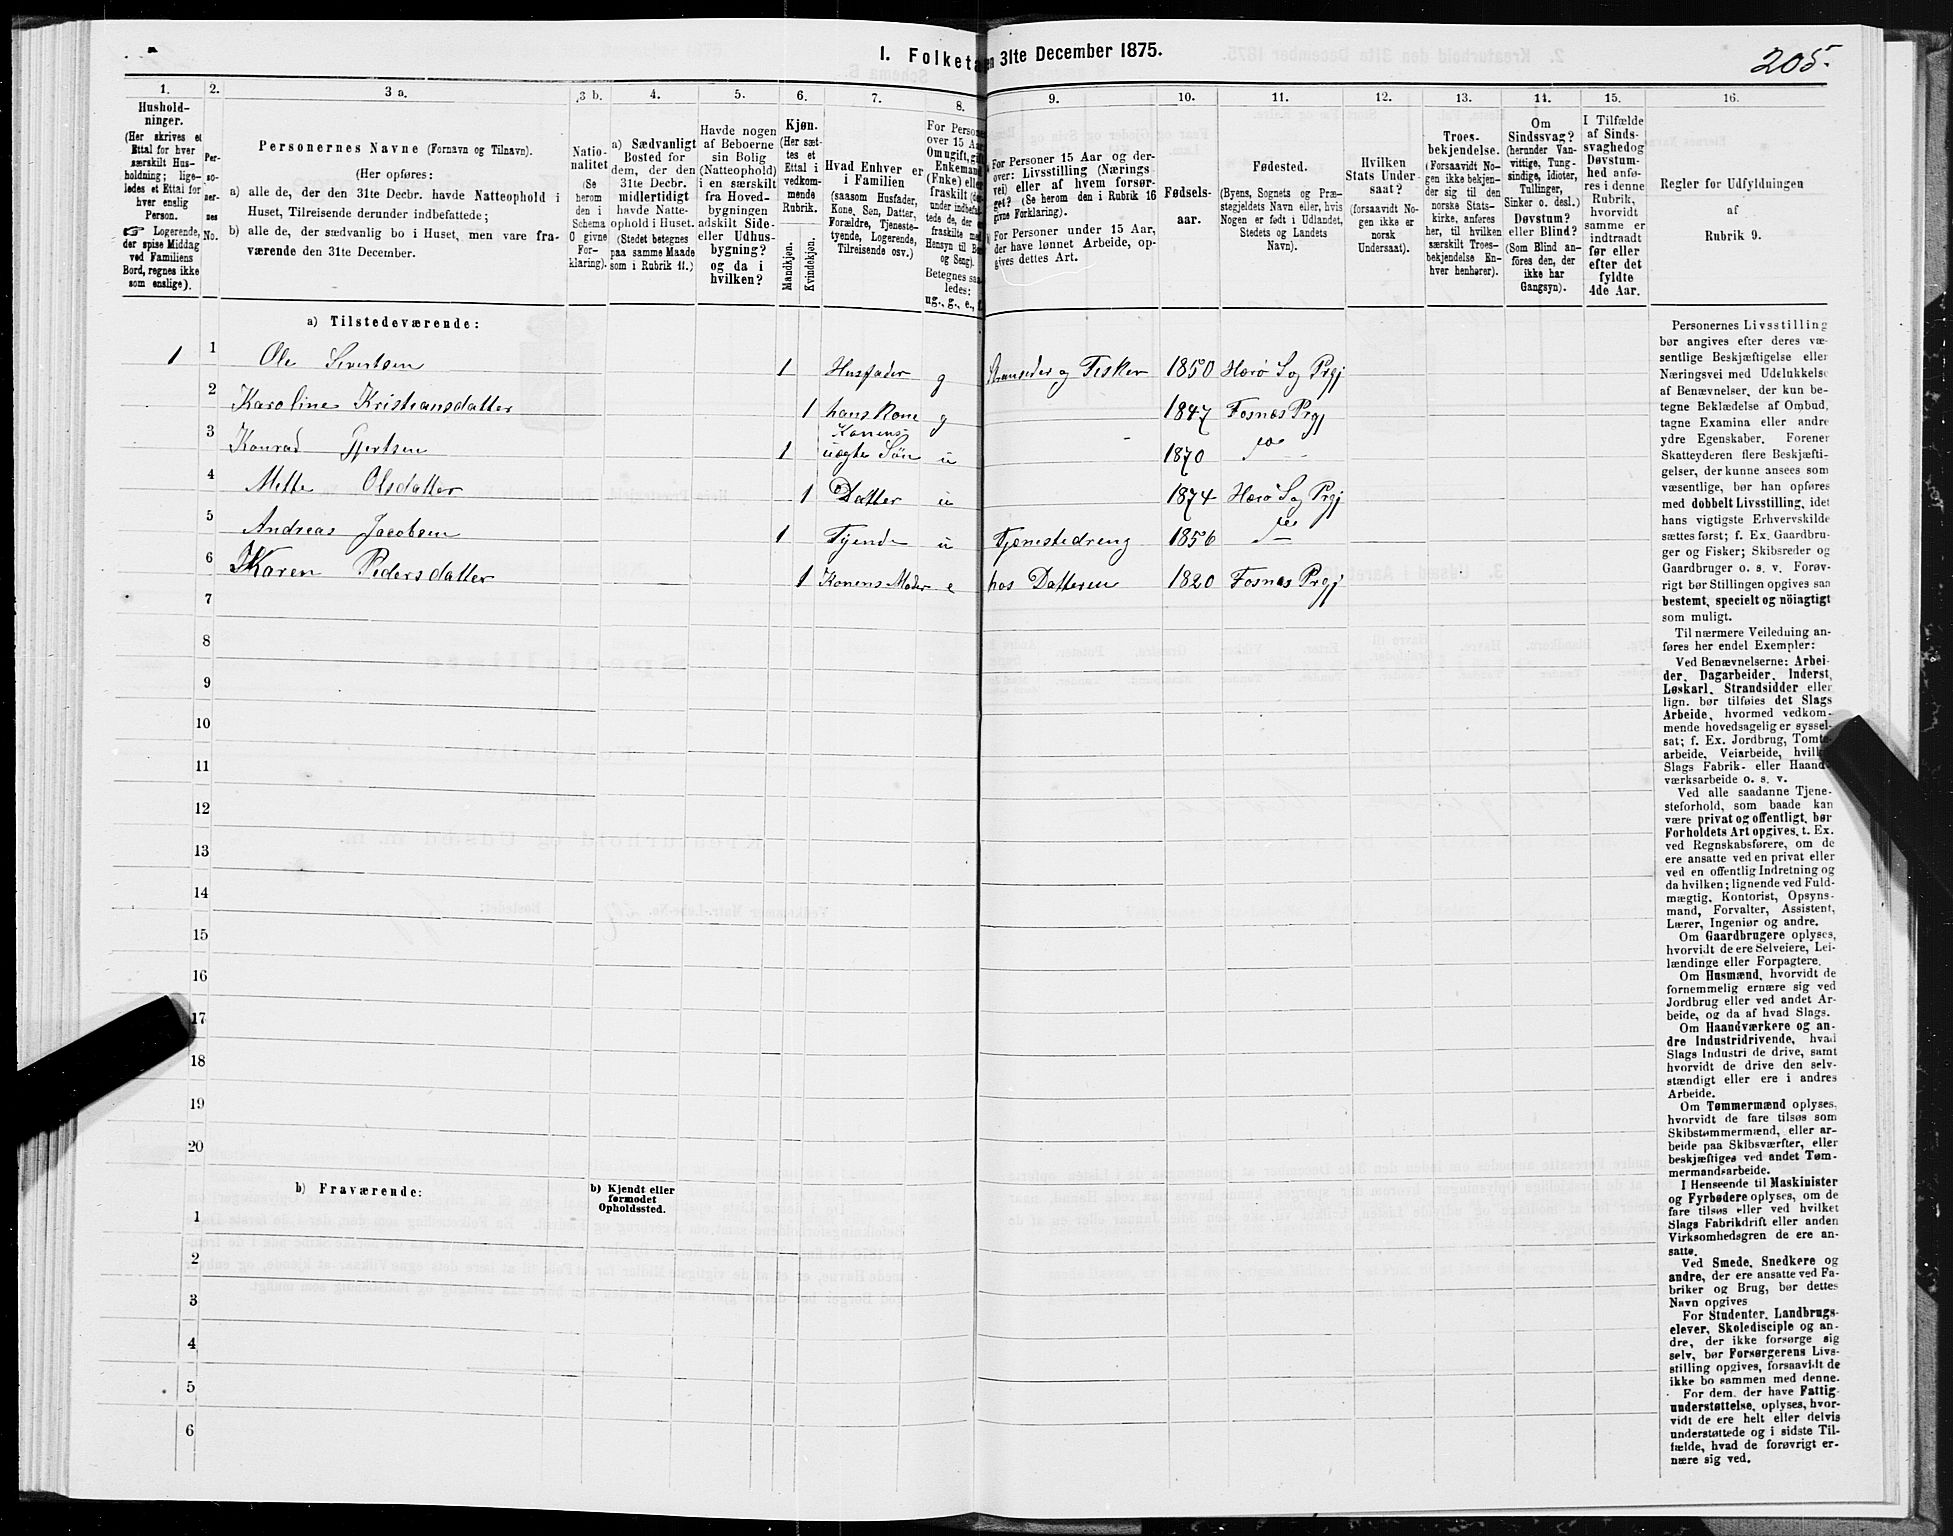 I. Folketæ
en 31te December 1875.
205.
1.
Hushold-
ninger.
(Her skrives et
Ettal for hver
særskilt Hus-
holdning; lige-
ledes et Ettal for
hver enslig
Person.
☞ Logerende,
der spise Middag
ved Familiens
Bord, regnes ikke
som enslige).
2.
Per-
so-
ner-
nes
No.
3 a.
Personernes Navne (Fornavn og Tilnavn).
(Her opføres:
a) alle de, der den 31te Decbr. havde Natteophold i
Huset, Tilreisende derunder indbefattede;
b) alle de, der sædvanlig bo i Huset, men vare fra-
værende den 31te December.
3 b.
Natio-
nalitet
(Se
herom
den i
Schema
C givne
For-
klaring).
4.
a) Sædvanligt
Bosted for
dem, der den
31te Decbr.
midlertidigt
havde Natte-
ophold i Huset.
(Stedet betegnes
paa samme Maade
som i Rubrik 11.)
5.
Havde nogen
af Beboerne
sin Bolig
(Natteophold)
i en særskilt
fra Hoved-
bygningen
adskilt Side-
eller Udhus-
bygning?
og da i
hvilken?
6.
Kjøn.
(Her sæt-
tes et
Ettal i
vedkom-
mende
Rubrik.
Mandkjøn.
Kvindekjøn.
7.
Hvad Enhver er
i Familien
(saasom Husfader,
Kone, Søn, Datter,
Forældre, Tjeneste-
tyende, Logerende,
Tilreisende osv.)
8.
For Persone
over 15 Aar
Om ugift, gift
Enkemand
(Enke) elle
fraskilt (de
under indbefat
tede de, der e
fraskilte med
Hensyn til Bo
og Seng).
Betegnes saa
ledes:
ug., g., e., f.
9.
For Personer 15 Aar og der-
over: Livsstilling (Nærings-
vei) eller af hvem forsør-
get? (Se herom den i Rubrik 16
givne Forklaring).
For Personer under 15 Aar,
der have lønnet Arbeide, op-
gives dettes Art.
10.
Fødsels-
aar.
11.
Fødested.
(Byens, Sognets og Præ-
stegjeldets Navn eller, hvis
Nogen er født i Udlandet,
Stedets og Landets
Navn).
12.
Hvilken
Stats Under-
saat?
(forsaavidt No-
gen ikke er
norsk
Undersaat).
13.
Troes-
bekjendelse.
(Forsaavidt No-
gen ikke bekjen-
der sig til den
norske Stats-
kirke, anføres
her, til hvilken
særskilt Troes-
bekjendelse En-
hver henhører).
14.
Om
Sindssvag?
(herunder Van-
vittige, Tung-
sindige, Idioter,
Tullinger,
Sinker o. desl.)
Døvstum?
eller Blind?
(Som Blind an-
føres den, der
ikke har
Gangsyn).
15.
I Tilfælde
af Sinds-
svaghedog
Døvstum-
hed anfø-
res i denne
Rubrik,
hvorvidt
samme er
indtraadt
før eller
efter det
fyldte
4de Aar.
16.
Regler for Udfyldningen
af
Rubrik 9.
a) Tilstedeværende:
1 1 Ole Sivertsen 1 Husfader g Strandsider og Fisker 1850 Herø S og Prgj
2 Karoline Kristiansdatter 1 hans Kone g 1847 Fosnæs Prgj
3 Konrad Gjertsen 1 Konens uægte Søn u 1870 do
4 Mette Olsdatter 1 Datter u 1874 Herø S og Prgj
5 Andreas Jacobsen 1 Tyende u Tjenestedreng 1856 do
6 Karen Pedersdatter 1 Konens Moder e hos Datteren 1820 Fosnæs Prgj
7
8
9
10
11
12
13
14
15
16
17
18
19
20
b) Fraværende:
b) Kjendt eller
formodet
Opholdssted.
1
2
3
4
5
6
Personernes Livsstilling
bør angives efter deres væ-
sentlige Beskjæftigelse eller
Næringsvei med Udelukkelse
af Benævnelser, der kun be-
tegne Beklædelse af Ombud,
tagne Examina eller andre
ydre Egenskaber. Forener
Skatteyderen flere Beskjæfti-
gelser, der kunne ansees som
væsentlige, bør han opføres
med dobbelt Livsstilling, idet
hans vigtigste Erhvervskilde
sættes først; f. Ex. Gaardbru-
ger og Fisker; Skibsreder og
Gaardbruger o. s. v. Forøv-
rigt bør Stillingen opgives saa
bestemt, specielt og nöiagtigt
som muligt.
Til nærmere Veiledning an-
føres her endel Exempler:
Ved Benævnelserne: Arbei-
der, Dagarbeider, Inderst,
Løskarl, Strandsidder eller
lign. bør tilføies det Slags
Arbeide, hvormed vedkom-
mende hovedsagelig er syssel-
sat; f. Ex. Jordbrug, Tomte-
arbeide, Veiarbeide, hvilket
Slags Fabrik- eller Haand-
værksarbeide o. s. v.
Ved alle saadanne Tjene-
steforhold, som baade kan
være privat og offentligt, bør
Forholdets Art opgives. t. Ex.
ved Regnskabsførere, om de
ere ansatte ved en privat eller
ved en offentlig Indretning og
da hvilken; lignende ved Fuld-
mægtig, Kontorist, Opsyns-
mand, Forvalter, Assistent,
Lærer, Ingeniør og andre.
Om Gaardbrugere oplyses,
hvorvidt de ere Selveiere, Lei-
lændinge eller Forpagtere.
Om Husmænd, hvorvidt de
fornemmelig ernære sig ved
Jordbrug eller ved andet Ar-
beide, og da af hvad Slags.
Om Haandværkere og an-
dre Industridrivende, hvad
Slags Industri de drive, samt
hvorvidt de drive den selv-
stændigt eller ere i andres
Arbeide.
Om Tømmermænd oplyses,
hvorvidt de fare tilsøs som
Skibstømmermænd, eller ar-
beide paa Skibsværfter, eller
beskjæftiges ved andet Tøm-
mermandsarbeide.
I Henseende til Maskinister
og Fyrbødere oplyses, om de
fare tilsøs eller ved hvilket
Slags Fabrikdrift eller anden
Virksomhedsgren de ere an-
satte.
Ved Smede, Snedkere og
andre, der ere ansatte ved Fa-
briker og Brug, bør dettes
Navn opgives
For Studenter, Landbrugs-
elever, Skoledisciple og an-
dre, der ikke forsørge sig
selv, bør Forsørgerens Livs-
stilling opgives, forsaavidt de
ikke bo sammen med denne.
For dem, der have Fattig-
understøttelse, oplyses, hvor-
vidt de ere helt eller delvis
understøttede og i sidste Til-
fælde, hvad de forøvrigt er-
nære sig ved.